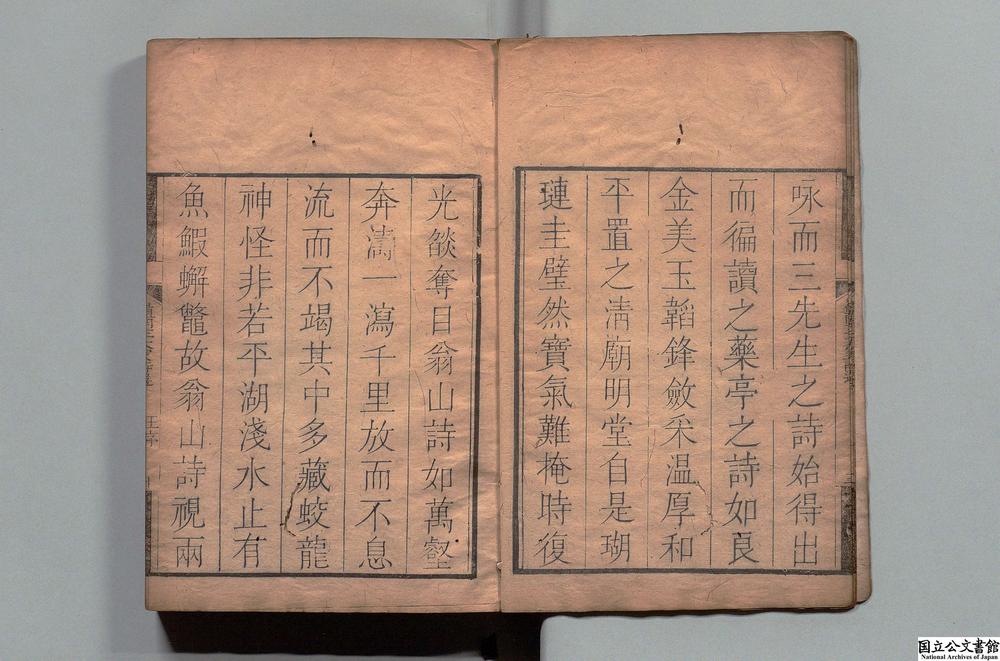 咏而三先生之詩始得出
而徧讀之藥亭之詩如良
金美玉韜鋒斂采温厚和
平置之清廟明堂自是瑚
璉圭璧然寶氣難掩時復
光燄奪目翁山詩如萬壑
奔濤一瀉千里放而不息
流而不竭其中多藏蛟龍
神怪非若平湖淺水止有
魚鰕蠏鼈故翁山詩視兩
国立公文書館
National Archives of Japan